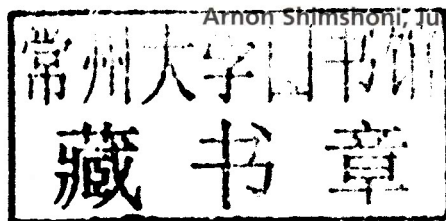 Arnon Shimshoni, Ju
常州大学图书馆
藏书章